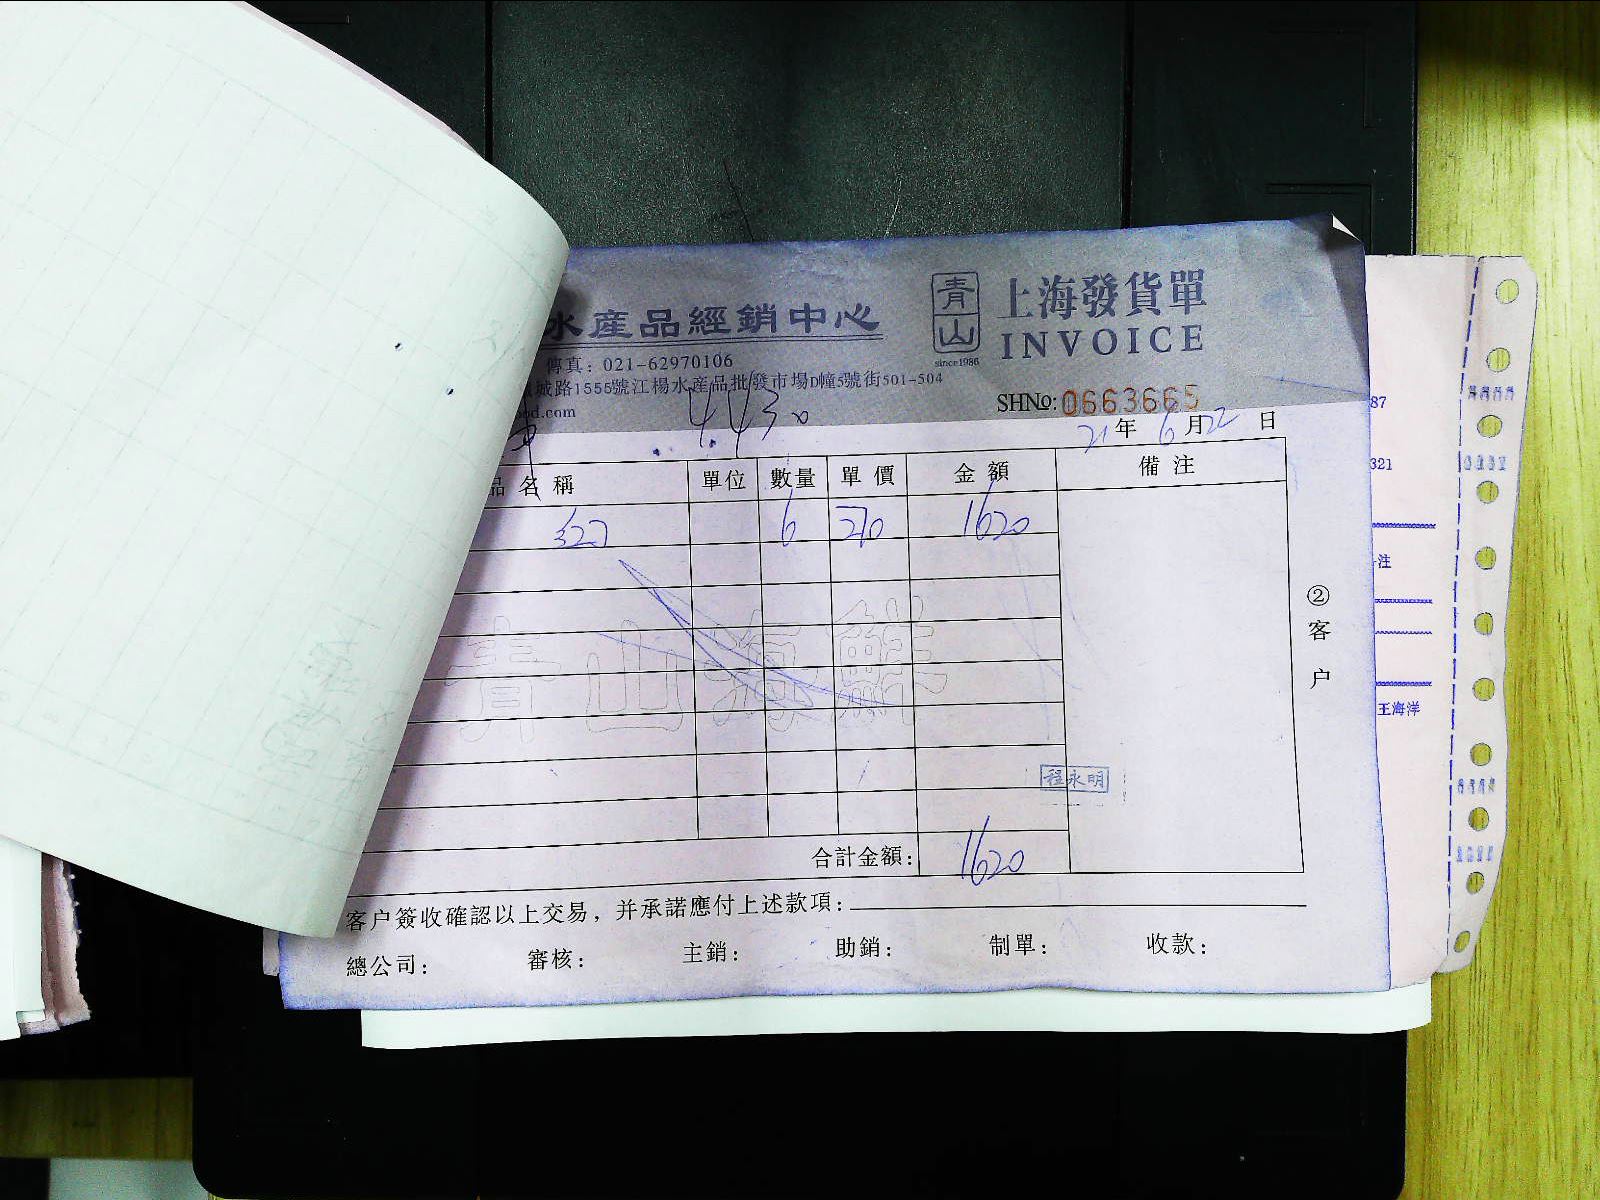 水產品經銷中心
青山
since1986
上海發貨單
INVOICE
傳真：021-62970106
城路1555號江楊水產品批發市場D幢5號街501-504
od.com
SHNo: 0663665
21年6月22日
品名稱 單位 數量 單價 金額 備注
327 6 270 1620
青山海鮮
②客户
程永明
合計金額： 1620
客户簽收確認以上交易，并承諾應付上述款項：
總公司： 審核： 主銷： 助銷： 制單： 收款：
87
321
注
王海洋